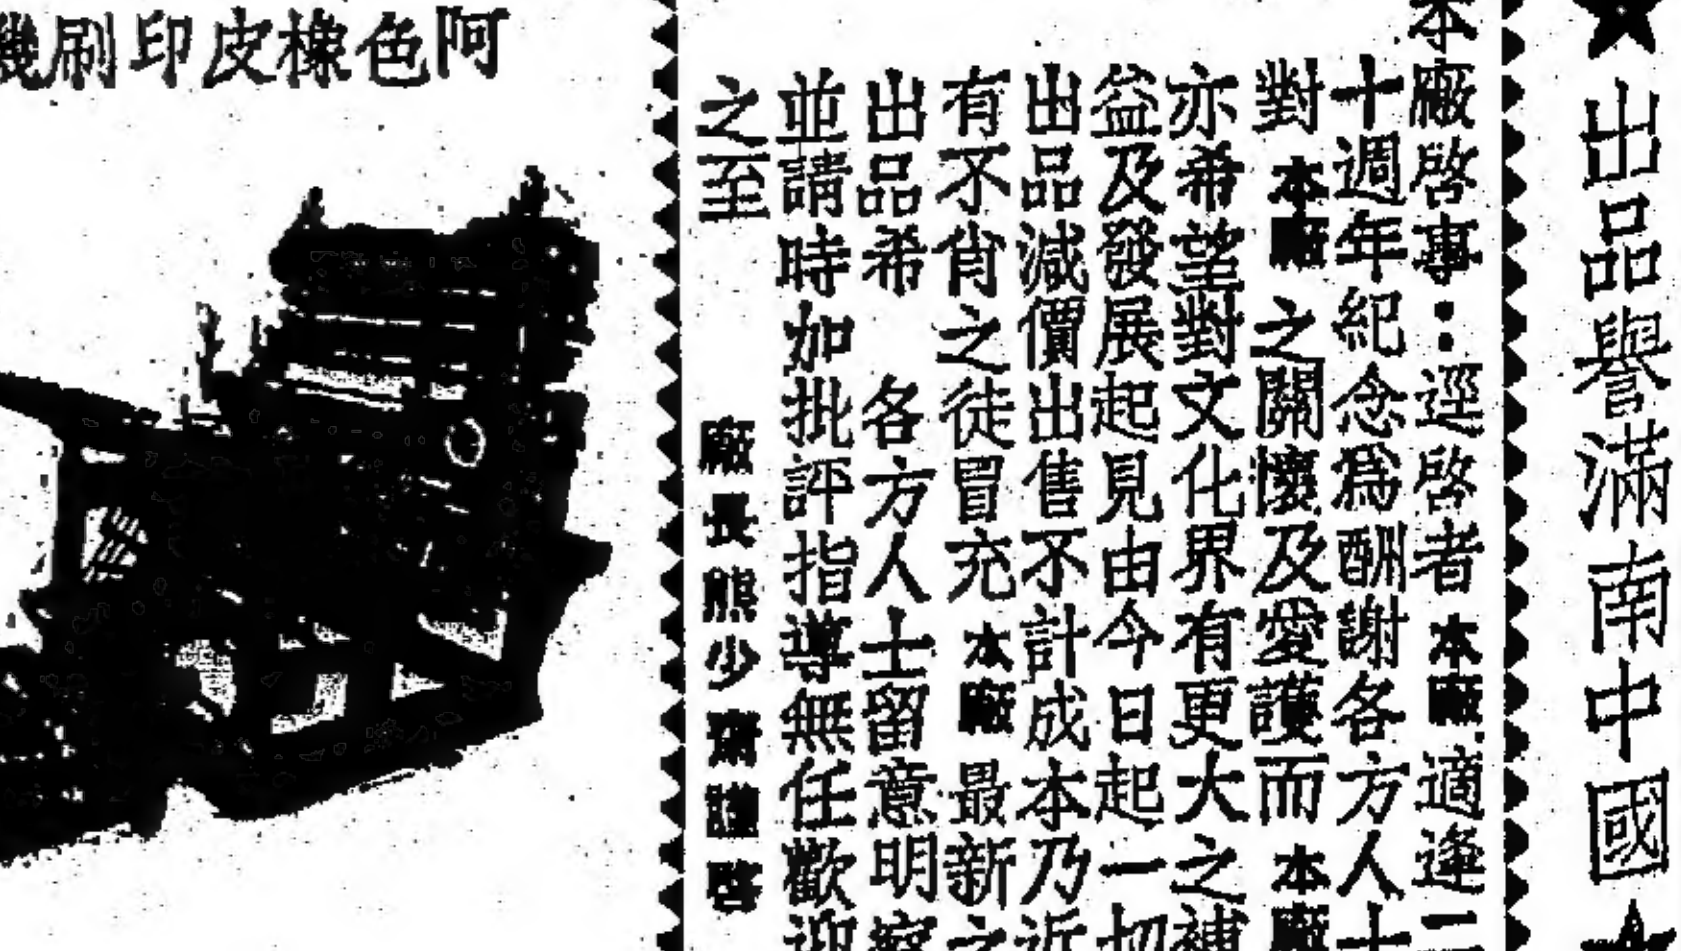 出品譽滿南中國
本廠啓事：逕啓者本廠適逢二
十週年紀念爲酬謝各方人士
對本廠之關懷及愛護而本廠
亦希望對文化界有更大之補
益及發展起見由今日起一切
出品減價出售不計成本乃近
有不肖之徒冒充本廠最新之
出品希 各方人士留意明察
並請時加批評指導無任歡迎
之至
廠長熊少謹啓
阿色橡皮印刷機